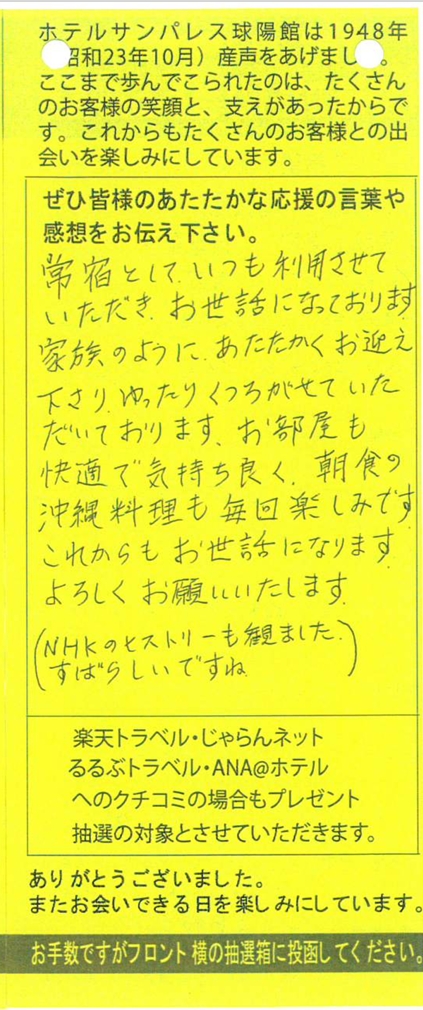 ホテルサンパレス球陽館は1948年
昭和23年10月）産声をあげまし。
ここまで歩んでこられたのは、たくさん
のお客様の笑顔と、支えがあったからで
す。これからもたくさんのお客様との出
会いを楽しみにしています。
ぜひ皆様のあたたかな応援の言葉や
感想をお伝え下さい。
常宿として、いつも利用させて
いただき、お世話になっております
家族のように、あたたかくお迎え
下さり、ゆったりくつろがせていた
だいております、お部屋も
快適で気持ち良く、朝食の
沖縄料理も毎回楽しみです
これからもお世話になります
よろしくお願いいたします
（NHKのヒストリーも観ました、
すばらしいですね）
楽天トラベル・じゃらんネット
るるぶトラベル・ANA@ホテル
へのクチコミの場合もプレゼント
抽選の対象とさせていただきます。
ありがとうございました。
またお会いできる日を楽しみにしています。
お手数ですがフロント横の抽選箱に投函してください。